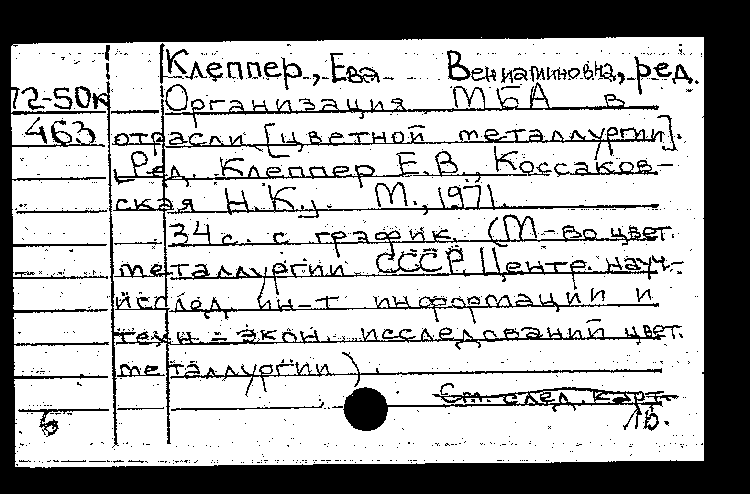 Клеппер, Ева Вениаминовна, ред.
72-50к Организация МБА в
463 отрасли [цветной металлургии].
[Ред. Клеппер Е.В., Коссаков-
ская Н.К.]. М., 1971.
34 с. с график. (М-во цвет.
металлургии СССР. Центр. науч.-
исслед. ин-т информации и
техн.-экон. исследований цвет.
металлургии).
См. след. карт.
б 1в.